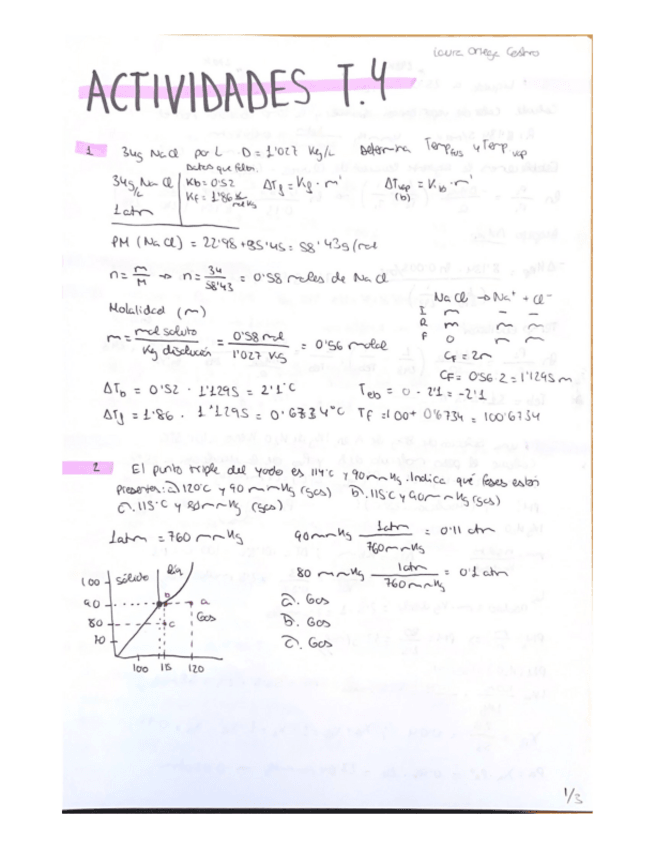 Laura Ortega Castro
ACTIVIDADES T.4
1 34g NaCl por L D = 1'027 Kg/L Determina Temp y Temp vap
Datos que faltan
34g/L NaCl Kb = 0'52 ΔTf = Kf · m' ΔTvap = Kb · m'
Kf = 1'86 (b)
1 atm
PM (NaCl) = 22'98 + 35'45 = 58'43 g/mol
n = m/M → n = 34/58'43 = 0'58 moles de NaCl
NaCl → Na⁺ + Cl⁻
Molalidad (m) I m — —
R m m m
m = mol soluto / Kg disolución = 0'58 mol / 1'027 Kg = 0'56 molal F 0 m m
CF = 2m
CF = 0'56 · 2 = 1'1295 m
ΔTb = 0'52 · 1'1295 = 2'1°C Teb = 0 - 2'1 = -2'1
ΔTf = 1'86 · 1'1295 = 0'6734°C Tf = 100 + 0'6734 = 100'6734
2 El punto triple del yodo es 114°C y 90mmHg. Indica qué fases están
presentes: a) 120°C y 90mmHg (gas) b). 115°C y 90mmHg (gas)
c). 115°C y 80mmHg (gas)
1 atm = 760mmHg 90mmHg 1atm / 760mmHg = 0'11 atm
80 mmHg 1atm / 760mmHg = 0'1 atm
sólido Líq
100
90 b a
Gas
80 c
70
100 115 120
a. Gas
b. Gas
c. Gas
1/3